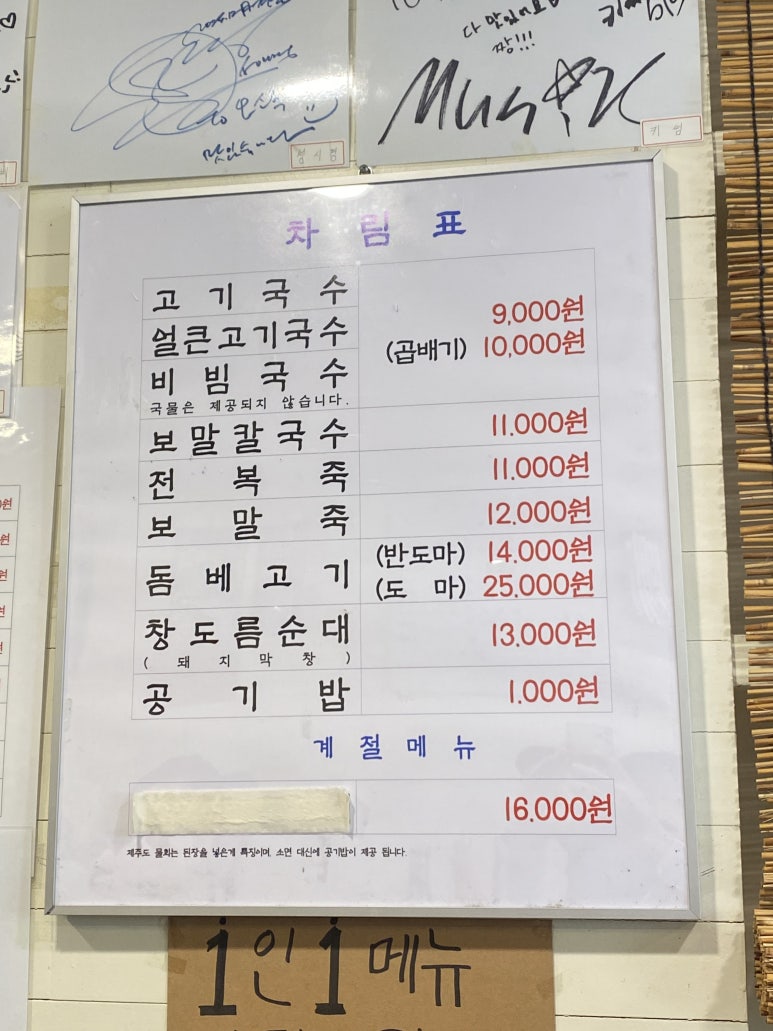 다 맛있어요
짱!!!
맛있습니다
정시경
키썸
차림표
고기국수
얼큰고기국수
비빔국수
국물은 제공되지 않습니다.
9,000원
(곱배기) 10,000원
보말칼국수 11,000원
전복죽 11,000원
보말죽 12,000원
돔베고기 (반도마) 14,000원
(도마) 25,000원
창도름순대 13,000원
(돼지막창)
공기밥 1,000원
계절메뉴
16,000원
제주도 물회는 된장을 넣은게 특징이며, 소면 대신에 공기밥이 제공 됩니다.
1인 1 메뉴